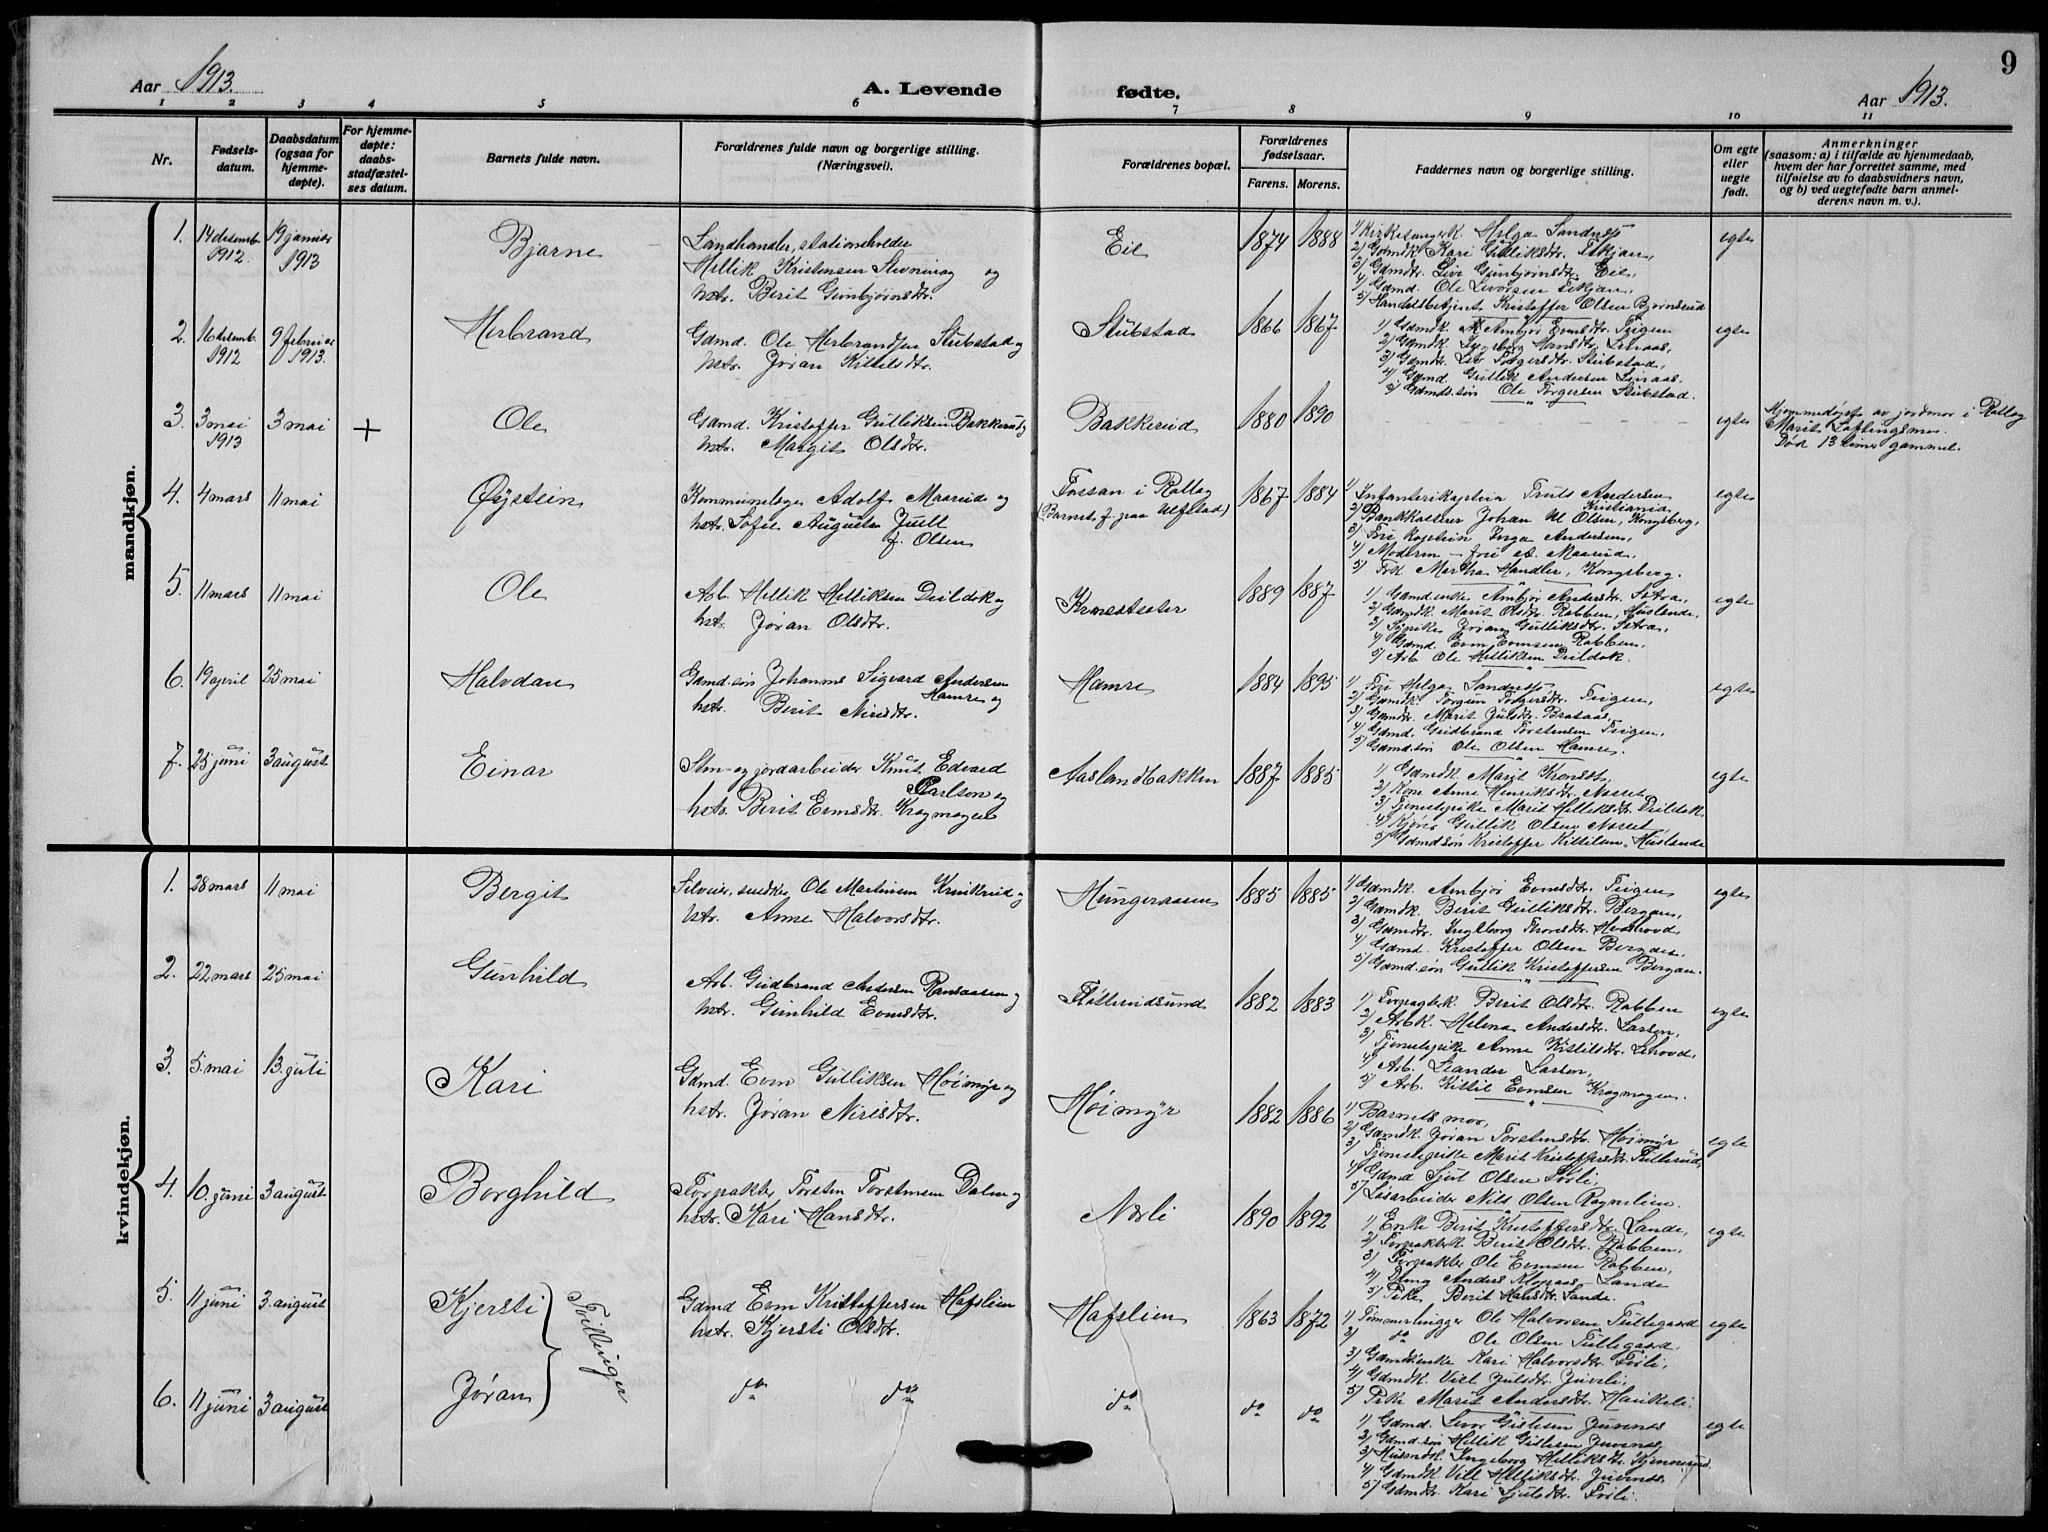 9
Aar 1913.
A. Levende
fødte.
Aar 1913.
1 2 3 4 5 6 7 8 9 10 11
Nr.
Fødsels-
datum.
Daabsdatum
(ogsaa for
hjemme-
døpte).
For hjemme-
døpte:
daabs-
stadfæstel-
ses datum.
Barnets fulde navn.
Forældrenes fulde navn og borgerlige stilling.
(Næringsvei).
Forældrenes bopæl.
Forældrenes
fødselsaar.
Farens. Morens.
Faddernes navn og borgerlige stilling.
Om egte
eller
uegte
født.
Anmerkninger
(saasom: a) i tilfælde av hjemmedaab,
hvem der har forrettet samme, med
tilføielse av to daabsvidners navn,
og b) ved uegtefødte barn anmel-
derens navn m. v.).
mandkjøn.
1. 14 desemb. 1912
19 januar 1913
Bjarne
Landhandler, stationsholder
Hellik Kristensen og
hstr. Berit Gunbjørnsdtr.
Eie
1874 1888
1) Kirkesangerk. Helga Sandnes,
2) Gdmdk. Kari Gulliksdtr.
3) Gdmdtr. Live Gunbjørnsdtr. Eie,
4) Gdmd. Ole Levorsen
5) Handelsbetjent Kristoffer Olsen Bjørnsrud
egte
2. 16 desemb. 1912
9 februar 1913.
Herbrand
Gdmd. Ole Herbrandsen Stubstad og
hstr. Jøran Kittilsdtr.
Stubstad
1866 1867
1) Gdmdk. Ambjør Evensdtr. Teigen
2) Gdmdk. Ingeborg Hansdtr. Linaas,
3) Gdmdtr. Liv Torgersdtr. Stubstad,
4) Gdmd. Gullik Andersen Linaas,
5) Gdmds.søn Ole Torgersen Stubstad.
egte
3. 3 mai 1913
3 mai
+
Ole
Gdmd. Kristoffer Gulliksen Bakkerud og
hstr. Margit Olsdtr.
Bakkerud
1880 1890
egte
Hjemmedøpt av jordmor i Rollag
Marit
Død 13 timer gammel.
4. 4 mars
11 mai
Øystein
Kommunelæge Adolf Maarud og
hstr. Sofie Augusta Juell
f. Olsen
Fossan i Rollag
(Barnet f. paa Ulfstad)
1867 1884
1) Infanterikaptein Truls Andersen
Kristiania,
2) Bankkasserer Johan M Olsen, Kongsberg,
3) Frue Kaptein Inga Andersen,
4) Moderen – frue A. Maarud,
5) Frk. Martha Handler, Kongsberg.
egte
5. 11 mars
11 mai
Ole
Arb. Hellik Helliksen Dildok og
hstr. Jøran Olsdtr.
1889 1887
1) Gdmd.enke Ambjør Andersdtr. Sætra,
2) Gdmdk. Marit Olsdtr. Rabben, Huslende,
3) Jøran Gulliksdtr. Sætra,
4) Gdmd. Even Evensen Rabben,
5) Arb. Ole Helliksen Dildok.
egte
6. 19 april
25 mai
Halvdan
Gdmd.søn Johannes Sigvard Andersen
Hamre og
hstr. Berit Nirisdtr.
Hamre
1884 1895
1) Frue Helga Sandnes,
2) Gdmdk. Torgun Torgersdtr. Teigen,
3) Gdmdtr. Marit Julsdtr. Brataas,
4) Gdmd. Gudbrand Torstensen Teigen,
5) Gdmd.søn Ole Olsen Hamre.
egte
7. 25 juni
3 august
Einar
Sten- og jordarbeider Knut Edvard
Carlson og
hstr. Berit Evensdtr. Kragmogen
Aaslandbakken
1887 1885
1) Gdmdk. Marit
2) Kone Anne Henriksdtr.
3) Tjenestepike Marit Helliksdtr. Dildok
4) Kjører Gullik Olsen
5) Gdmdsøn Kristoffer Kittilsen Huslende
egte
kvindekjøn.
1. 28 mars
11 mai
Bergit
Ole Martinsen og
hstr. Anne Halvorsdtr.
Hungeraasen
1885 1885
1) Gdmdk. Ambjør Evensdtr. Teigen
2) Gdmdk. Berit Gulliksdtr. Bergan,
3) Gdmdtr. Ingeborg
4) Gdmd. Kristoffer Olsen Bergan,
5) Gdmd.søn Gullik Kristoffersen Bergan.
egte
2. 22 mars
25 mai
Gunhild
Arb. Gudbrand Andersen og
hstr. Gunhild Evensdtr.
1882 1883
1) Forpagterk. Berit Olsdtr. Rabben
2) Arbk. Helena Andersdtr. Larsen,
3) Tjenestepike Anne Kittilsdtr.
4) Arb. Leander Larsen,
5) Arb. Kittil Evensen Kragmogen.
egte
3. 5. mai
13 juli
Kari
Gdmd. Even Gulliksen Høimyr og
hstr. Jøran Nirisdtr.
Høimyr
1882 1886
1) Barnets mor,
2) Gdmdk. Jøran Torstensdtr. Høimyr
3) Tjenestepike Marit Kristoffersdtr.
4) Gdmd Sjul Olsen
5) Løsarbeider Nils Olsen
egte
4. 10. juni
3 august
Borghild
Forpakter Torsten Torstensen Dalen og
hstr. Kari Hansdtr.
Nørli
1890 1892
1) Enke Berit Kristoffersdtr. Lande,
2) Forpakterk Berit Olsdtr. Rabben,
3) Forpakter Ole Evensen Rabben,
4) Ungg Anders Lande
5) Pike Berit Hansdtr. Lande.
egte
5. 11 juni
3. august
Kjersti
Tvillinger
Gdmd Even Kristoffersen Hafslien
hstr. Kjersti Olsdtr.
Hafslien
1863 1872
1) Tømmerhugger Ole Halvorsen Tuftegaard
2) do Ole Olsen Tuftegaard
3) Gdmdenke Kari Halvorsdtr.
4) Gdmdk. Julsdtr. Juveli,
5) Pike Marit Andersdtr. Haukeli.
egte
6. 11 juni
3 august
Jøran
do do
do
do do
1) Gdmd. Levor Gislesen Juvenes
2) Gdmd.søn Hellik Gislesen Juvenes,
3) Ingeborg Helliksdtr.
4) Gdmdk. Helliksdtr. Juvenes.
5) Gdmdtr. Kari Sjulsdtr.
egte